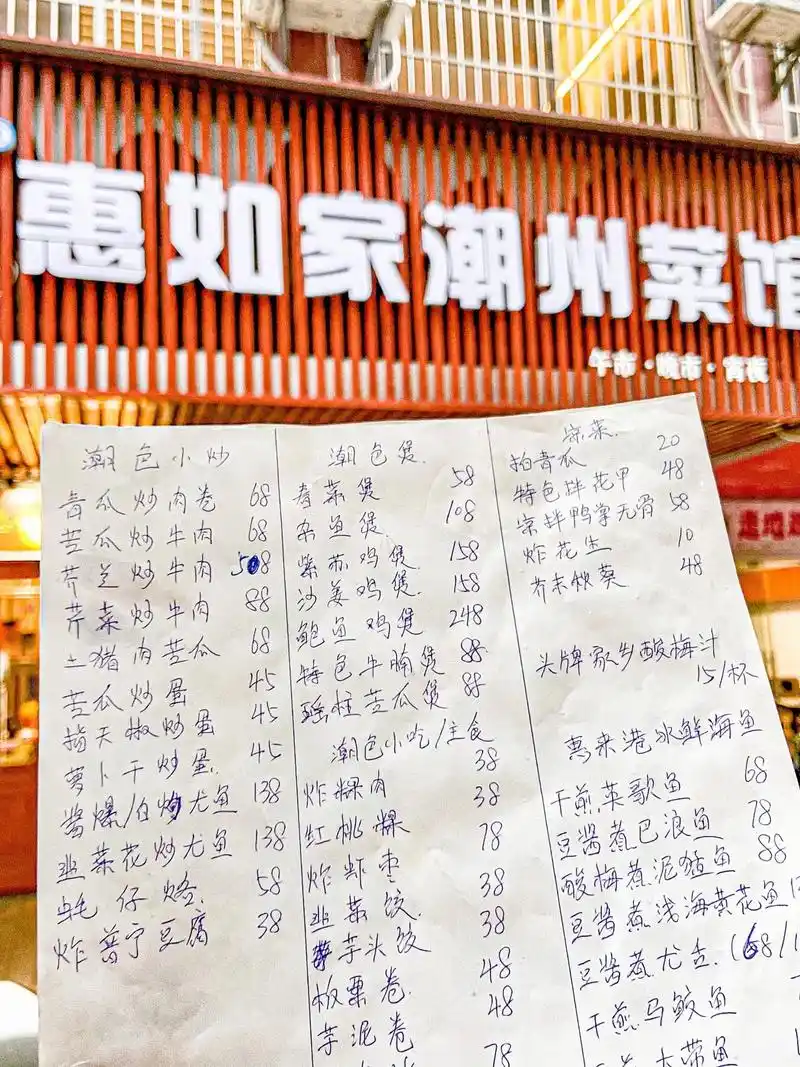 惠如家潮州菜馆
午市·晚市·宵夜
潮色小炒
青瓜炒肉卷 68
苦瓜炒牛肉 68
芥兰炒牛肉 508
芹菜炒牛肉 88
土猪肉苦瓜 68
苦瓜炒蛋 45
指天椒炒蛋 45
萝卜干炒蛋 45
酱爆/白灼尤鱼 138
韭菜花炒尤鱼 138
蚝仔烙 58
炸普宁豆腐 38
潮色煲
春菜煲 58
杂鱼煲 108
紫苏鸡煲 158
沙姜鸡煲 158
鲍鱼鸡煲 248
特色牛腩煲 88
瑶柱苦瓜煲 88
潮色小吃/主食
炸粿肉 38
红桃粿 38
炸虾枣 78
韭菜饺 38
芋头饺 38
板栗卷 48
芋泥卷 48
78
凉菜
拍青瓜 20
特色拌花甲 48
凉拌鸭掌无骨 58
炸花生 10
芥末秋葵 48
头牌家乡酸梅汁
15/杯
惠来港冰鲜海鱼
干煎英歌鱼 68
豆酱煮巴浪鱼 78
酸梅煮泥猛鱼 88
豆酱煮浅海黄花鱼
豆酱煮尤舌 (68/
干煎马鲛鱼